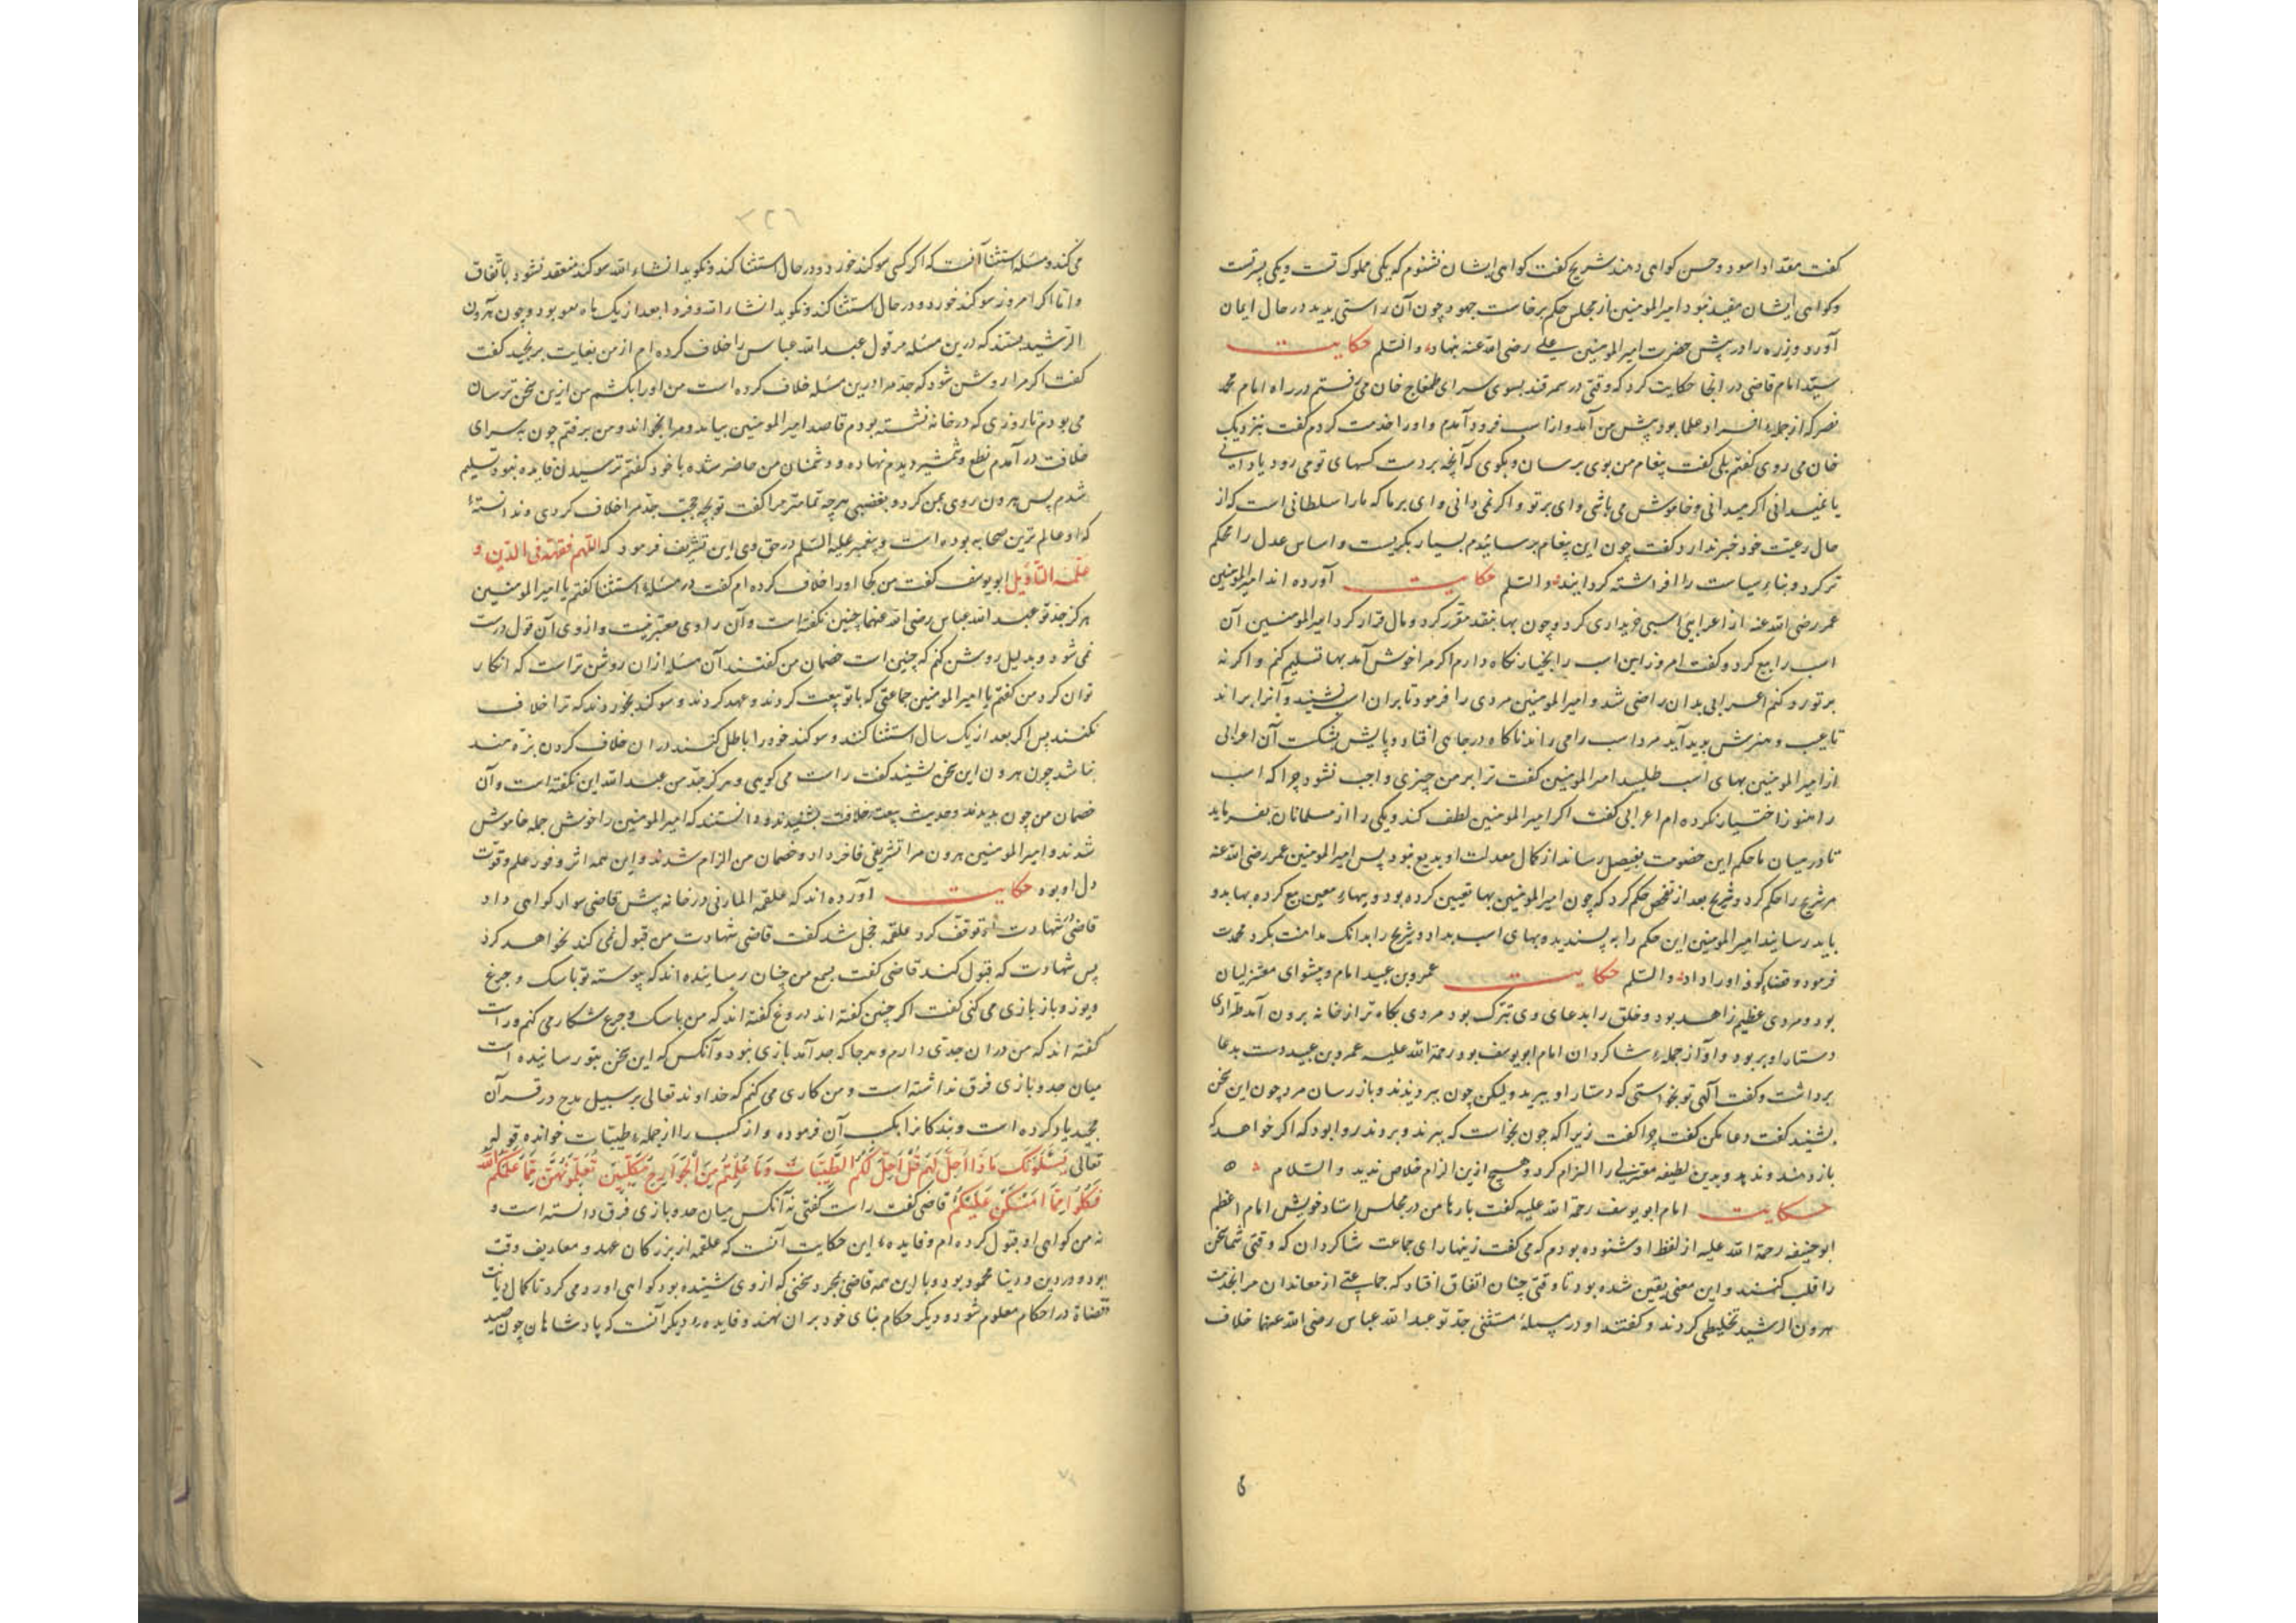 گفت مقداد اسود و حسن گواهی دهند شریح گفت گواهی ایشان نشنوم که یکی مملوک تست و یکی پسر تست
و گواهی ایشان مفید نبود امیرالمومنین از مجلس حکم برخاست جهود چون آن راستی بدید در حال ایمان
آورد و زره را در پیش حضرت امیرالمومنین علی رضی الله عنه بنهاد والسّلم حکایت
سیّد امام قاضی در انجا حکایت کرد که وقتی در سمرقند بسوی سرای طمغاج خان می رفتم در راه امام محمد
نصر که از جمله افراد علما بود پیش من آمد و از اسب فرود آمدم و او را خدمت کردم گفت بنزدیک
خان می روی گفتم بلی گفت پیغام من بوی برسان و بگوی که آنچه بر دست کسهای تو می رود یا دانی
یا نمیدانی اگر میدانی و خاموش می باشی وای بر تو و اگر نمی دانی وای بر ما که ما را سلطانی است که از
حال رعیت خود خبر ندارد گفت چون این پیغام برسانیدم بسیار بگریست و اساس عدل را محکم
تر کرد و بناء سیاست را افراشته گردانید والسّلم حکایت آورده اند امیرالمومنین
عمر رضی الله عنه از اعرابی اسبی خریداری کرد و چون بها بنقد مقرر کرد و مال قرار کرد امیرالمومنین آن
اسب را بیع کرد و گفت امروز این اسب را بخیار نگاه دارم اگر مرا خوش آمد بها تسلیم کنم و اگر نه
بر تو رد کنم اعرابی بدان راضی شد و امیرالمومنین مردی را فرمود تا بران اسب نشیند و آنرا براند
تا عیب و هنرش پدید آید مرد اسب را می راند ناگاه در جاهی افتاد و پایش بشکست آن اعرابی
از امیرالمومنین بهای اسب طلبید امیرالمومنین گفت ترا بر من چیزی واجب نشود چرا که اسب
را هنوز اختیار نکرده ام اعرابی گفت اگر امیرالمومنین لطف کند و یکی را از مسلمانان بفرماید
تا در میان ما حکم این خصومت بفیصل رساند از کمال معدلت او بدیع نبود پس امیرالمومنین عمر رضی الله عنه
مر شریح را حکم کرد و شریح بعد از تفحص حکم کرد که چون امیرالمومنین بها تعیین کرده بود و ببهاء معین بیع کرده بها بدو
باید رسانید امیرالمومنین این حکم را به پسندید و بهای اسب بداد و شریح را بدانک مداهنت نکرد محمدت
فرمود و قضاء کوفه او را داد والسّلم حکایت عمرو بن عبید امام و پیشوای معتزلیان
بود و مردی عظیم زاهد بود و خلق را بدعای وی تبرک بود مردی بگاه تر از خانه برون آمد طرّاری
دستار او بربود و او از جمله شاگردان امام ابویوسف بود رحمة الله علیه عمرو بن عبید دست بدعا
برداشت و گفت الهی تو نخواستی که دستار او ببرند ولیکن چون ببردند باز رسان مرد چون این سخن
بشنید گفت دعا مکن گفت چرا گفت زیرا که چون نخواست که ببرند و بردند روا بود که اگر خواهد که
باز دهند و ندهد و بدین لطیفه معتزلی را الزام کرد و هیچ ازین الزام خلاص ندید والسّلام
حکایت امام ابویوسف رحمة الله علیه گفت بارها من در مجلس استاد خویش امام اعظم
ابوحنیفه رحمة الله علیه از لفظ او شنوده بودم که می گفت زینهار ای جماعت شاگردان که وقتی شما سخن
را قلب کنند و این معنی یقین شده بود تا وقتی چنان اتفاق افتاد که جماعتی از معاندان مرا بخدمت
هرون الرشید تخلیطی کردند و گفتند او در مسلهٔ مستثنی جدّ تو عبدالله عباس رضی الله عنهما خلاف
۳۲۶
می کند و مسله استثنا آنست که اگر کسی سوگند خورد و در حال استثنا کند و بگوید انشاء الله سوگند منعقد نشود باتّفاق
و اما اگر امروز سوگند خورد و در حال استثنا نکند و نگوید انشاء الله و فردا بعد از یک ماه معو بود و چون هرون
الرشید بستند که درین مسله مر قول عبدالله عباس را خلاف کرده ام از من بغایت برنجید گفت
گفت اگر مرا روشن شود که جدّ مرا درین مسله خلاف کرده است من او را بکشم من ازین سخن ترسان
می بودم تا روزی که در خانه نشسته بودم قاصد امیرالمومنین بیامد و مرا بخواند و من برفتم چون به سرای
خلافت در آمدم نطع و شمشیر دیدم نهاده و دشمنان من حاضر شده با خود گفتم ترسیدن فایده نبود تسلیم
شدم پس هرون روی بمن کرد و بغضبی هرچه تمامتر مرا گفت تو بچه حجت جدّ مرا خلاف کردی و ندانستهٔ
که او عالم ترین صحابه بوده است و پیغمبر علیه السّلم در حق وی این تشریف فرمود که اللّهم فقّهه فی الدّین و
علّمه التّأویل ابویوسف گفت من کجا او را خلاف کرده ام گفت در مسلهٔ استثنا گفتم یا امیرالمومنین
هرگز جدّ تو عبدالله عباس رضی الله عنهما چنین نگفته است و آن راوی معتبر نیست و از وی آن قول درست
نمی شود و بدلیل روشن کنم که چنین است خصمان من گفتند آن مسله ازان روشن تر است که انکار
توان کرد من گفتم یا امیرالمومنین جماعتی که با تو بیعت کردند و عهد کردند و سوگند بخوردند که ترا خلاف
نکنند پس اگر بعد از یک سال استثنا کنند و سوگند خود را باطل کنند دران خلاف کردن بزه مند
نباشد چون هرون این سخن بشنید گفت راست می گویی و هرگز جدّ من عبدالله این نگفته است و آن
خصمان من چون بدیدند و حدیث بیعت خلافت بشنیدند و دانستند که امیرالمومنین را خوش جمله خاموش
شدند و امیرالمومنین هرون مرا تشریفی فاخر داد و خصمان من الزام شدند و این همه اثر وفور علم و قوّت
دل او بود حکایت آورده اند که علقمة المازنی در خانه پیش قاضی سوار گواهی داد
قاضی در شهادت او توقف کرد علقمه خجل شد گفت قاضی شهادت من قبول نمی کند نخواهد کرد
پس شهادت که قبول کند قاضی گفت بسمع من چنان رسانیده اند که پیوسته تو با سگ و چرغ
و یوز و باز بازی می کنی گفت اگر چنین گفته اند دروغ گفته اند که من با سگ و چرغ شکار می کنم و راست
گفته اند که من دران جدّی دارم و هرجا که جد آمد بازی نبود و آنکس که این سخن بتو رسانیده است
میان جد و بازی فرق نداشته است و من کاری می کنم که خداوند تعالی بر سبیل مدح در قرآن
مجید یاد کرده است و بندگانرا بکسب آن فرموده و از کسب را از جملهٔ طیّبات خوانده قوله
تعالی یَسْئَلُونَکَ مَاذَا اُحِلَّ لَهُمْ قُلْ اُحِلَّ لَکُمُ الطَّیِّبَاتُ وَمَا عَلَّمْتُمْ مِنَ الْجَوَارِحِ مُکَلِّبِینَ تُعَلِّمُونَهُنَّ مِمَّا عَلَّمَکُمُ اللهُ
فَکُلُوا مِمَّا اَمْسَکْنَ عَلَیْکُمْ قاضی گفت راست گفتی نه آنکس میان جد و بازی فرق دانسته است و
نه من گواهی او قبول کرده ام و فایده این حکایت آنست که علقمه از بزرگان عهد و معاریف وقت
بود و در دین و دنیا محمود بود و با این همه قاضی بمجرد سخنی که از وی شنیده بود گواهی او رد می کرد تا کمال دیانت
قضاة در احکام معلوم شود و دیگر حکام بنای خود بران نهند و فایدهٔ دیگر آنست که پادشاهان چون